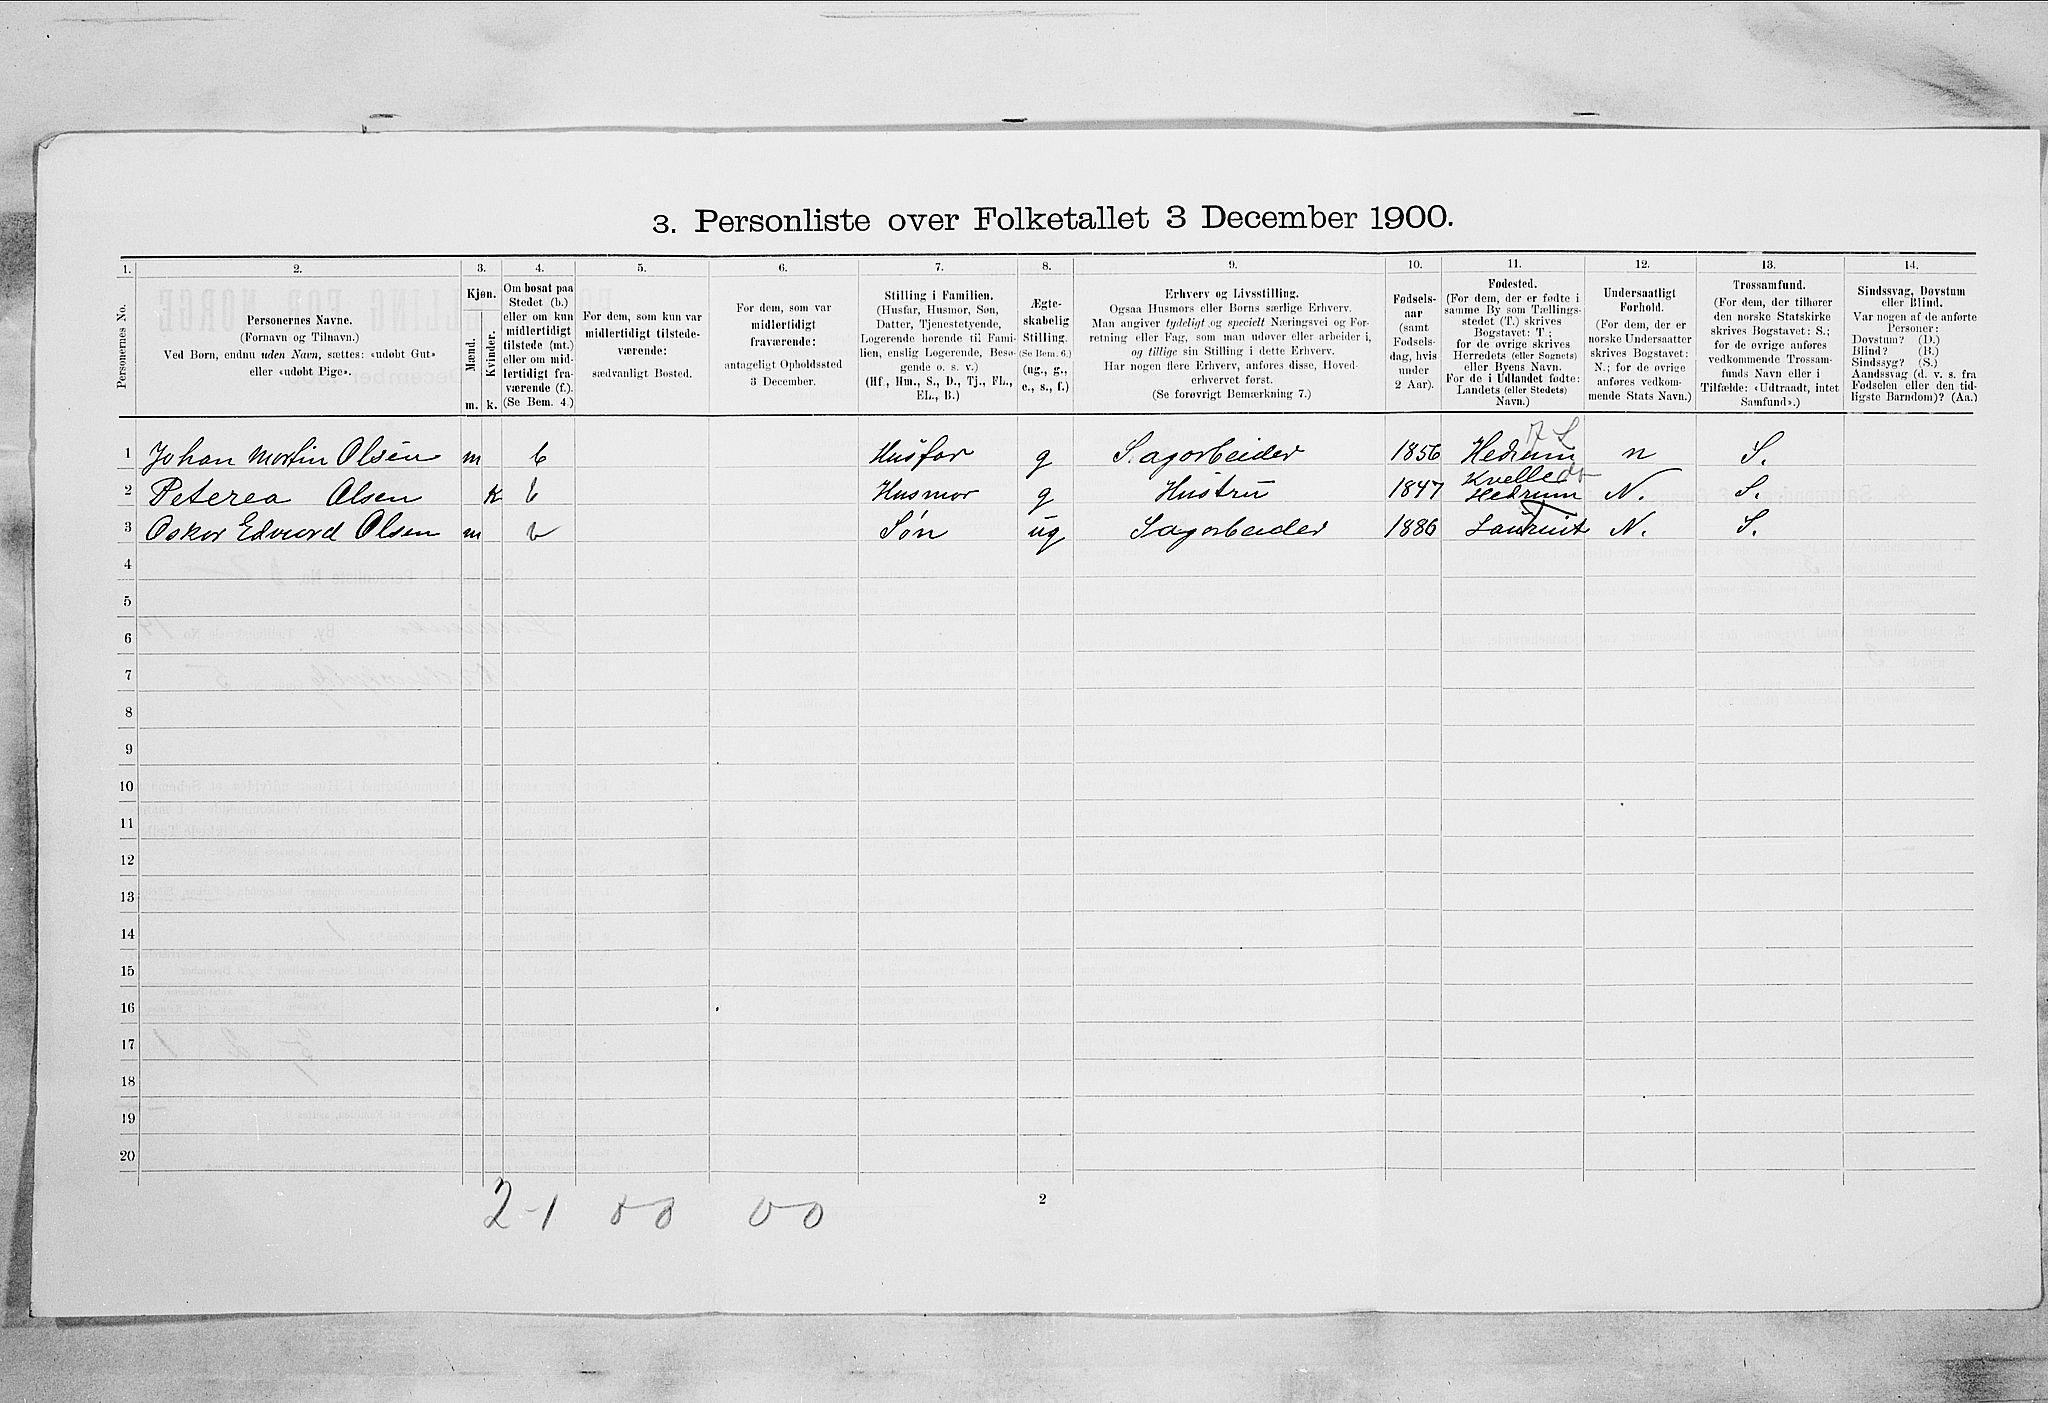 3. Personliste over Folketallet 3 December 1900.
1. 2. 3. 4. 5. 6. 7. 8. 9. 10. 11. 12. 13. 14.
Personernes No.
Personernes Navne.
(Fornavn og Tilnavn.)
Ved Børn, endnu uden Navn, sættes: «udøbt Gut»
eller «udøbt Pige».
Kjøn.
Mænd.
Kvinder.
m. k.
Om bosat paa
Stedet (b.)
eller om kun
midlertidigt
tilstede (mt.)
eller om mid-
lertidigt fra-
værende (f.).
(Se Bem. 4.)
For dem, som kun var
midlertidigt tilstede-
værende:
sædvanligt Bosted.
For dem, som var
midlertidigt
fraværende:
antageligt Opholdssted
3 December.
Stilling i Familien.
(Husfar, Husmor, Søn,
Datter, Tjenestetyende,
Logerende hørende til Fami-
lien, enslig Logerende, Besø-
gende o. s. v.)
(Hf., Hm., S., D., Tj., FL.,
EL., B.)
Ægte-
skabelig
Stilling.
(Se Bem. 6.)
(ug., g.,
e., s., f.)
Erhverv og Livsstilling.
Ogsaa Husmors eller Børns særlige Erhverv.
Man angiver tydeligt og specielt Næringsvei og For-
retning eller Fag, som man udøver eller arbeider i,
og tillige sin Stilling i dette Erhverv.
Har nogen flere Erhverv, anføres disse, Hoved-
erhvervet først.
(Se forøvrigt Bemærkning 7.)
Fødsels-
aar
(samt
Fødsels-
dag, hvis
under
2 Aar).
Fødested.
(For dem, der er fødte i
samme By som Tællings-
stedet (T.) skrives
Bogstavet: T.;
for de øvrige skrives
Herredets (eller Sognets)
eller Byens Navn.
For de i Udlandet fødte:
Landets (eller Stedets)
Navn.)
Undersaatligt
Forhold.
(For dem, der er
norske Undersaatter
skrives Bogstavet:
N.; for de øvrige
anføres vedkom-
mende Stats Navn.)
Trossamfund.
(For dem, der tilhører
den norske Statskirke
skrives Bogstavet: S.;
for de øvrige anføres
vedkommende Trossam-
funds Navn eller i
Tilfælde: «Udtraadt, intet
Samfund».)
Sindssvag, Døvstum
eller Blind.
Var nogen af de anførte
Personer:
Døvstum? (D.)
Blind? (B.)
Sindssyg? (S.)
Aandssvag (d. v. s. fra
Fødselen eller den tid-
ligste Barndom)? (Aa.)
1 Johan Martin Olsen m b Husfar g Sagarbeider 1856 Hedrum n S.
2 Peterea Olsen k b Husmor g Hustru 1847 Kvelle Hedrum N. S.
3 Oskar Edvard Olsen m b Søn ug Sagarbeider 1886 N. S.
4
5
6
7
8
9
10
11
12
13
14
15
16
17
18
19
20
2-1 00 00
2